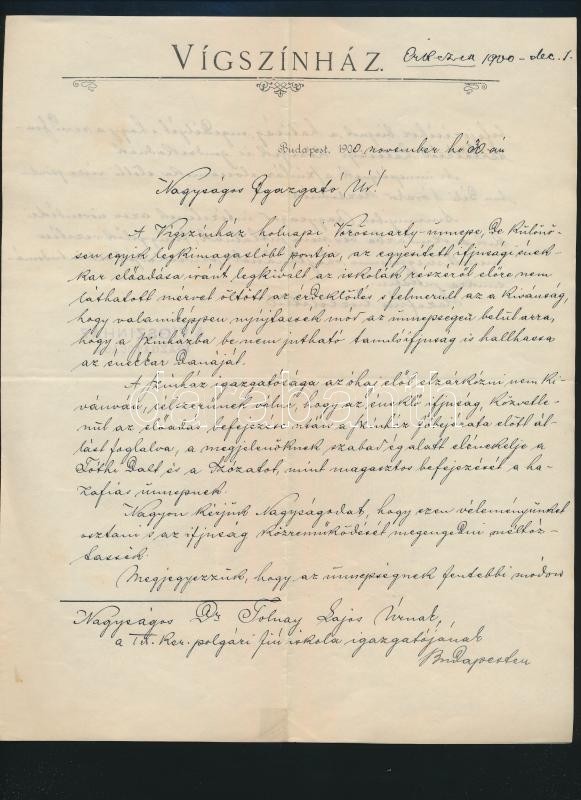 VÍGSZÍNHÁZ.
Érkezett 1900 - dec. 1.
Budapest, 1900. november hó 30.-án
Nagyságos Igazgató Úr!
A Vígszínház holnapi Vörösmarty-ünnepe, de különö-
sen egyik legkimagaslóbb pontja, az egyesített ifjúsági ének-
kar előadása iránt legkivált az iskolák részéről előre nem
láthatott mérvet öltött az érdeklődés s felmerült az a kívánság,
hogy valamiképpen nyújtassék mód az ünnepségen belül arra,
hogy a színházba be nem jutható tanulóifjuság is hallhassa
az énekkar danáját.
A színház igazgatósága az óhaj elől elzárkózni nem ki-
vánván, célszerünek vélné, hogy az éneklő ifjuság, közvetle-
nül az előadás befejezése után a színház főbejárata előtt ál-
lást foglalva, a megjelenőknek szabad ég alatt elénekelje a
Fóthi Dalt és a Szózatot, mint magasztos befejezését a ha-
zafias ünnepnek.
Nagyon kérjük Nagyságodat, hogy ezen véleményünket
osztani s az ifjuság közreműködését megengedni méltóz-
tassék.
Megjegyezzük, hogy az ünnepségnek fentebbi módon
Nagyságos Dr Tolnay Lajos Úrnak,
a ker. polgári fiú iskola igazgatójának
Budapesten
darabanth